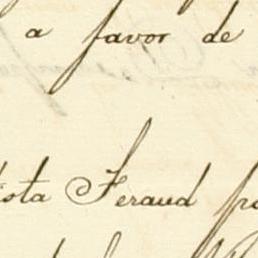 a favor de
ista Feraud